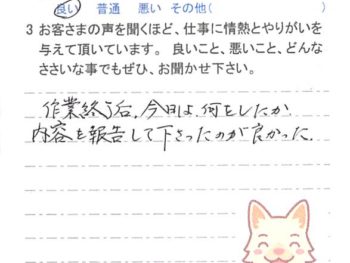 良い 普通 悪い その他( )
3 お客さまの声を聞くほど、仕事に情熱とやりがいを
与えて頂いています。良いこと、悪いこと、どんな
ささいな事でもぜひ、お聞かせ下さい。
作業終う后、今日は、何をしたか、
内容を報告して下さったのが良かった。